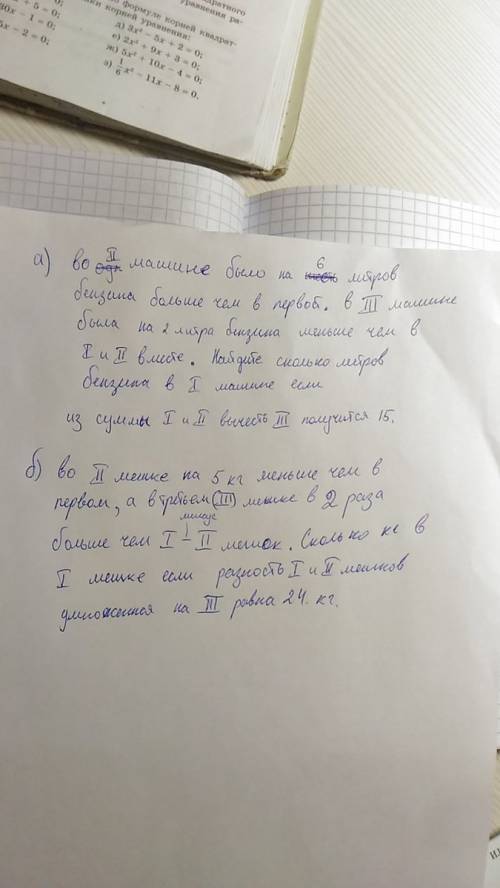 по формуле корней квадрат-
корней уравнения:
+ 5 = 0;
д) 3x² − 5x + 2 = 0;
30x − 1 = 0;
е) 2x² + 9x + 3 = 0;
5x − 2 = 0;
ж) 5x² + 10x − 4 = 0;
з) 1/6 x² − 11x − 8 = 0.
а) во II машине было на 6 литров
бензина больше чем в первой. в III машине
была на 2 литра бензина меньше чем в
I и II вместе. Найдите сколько литров
бензина в I машине если
из суммы I и II вычесть III получится 15.
б) во II мешке на 5 кг меньше чем в
первом, а в третьем (III) мешке в 2 раза
минус
больше чем I − II мешок. Сколько кг в
I мешке если разность I и II мешков
умноженная на III равна 24 кг.